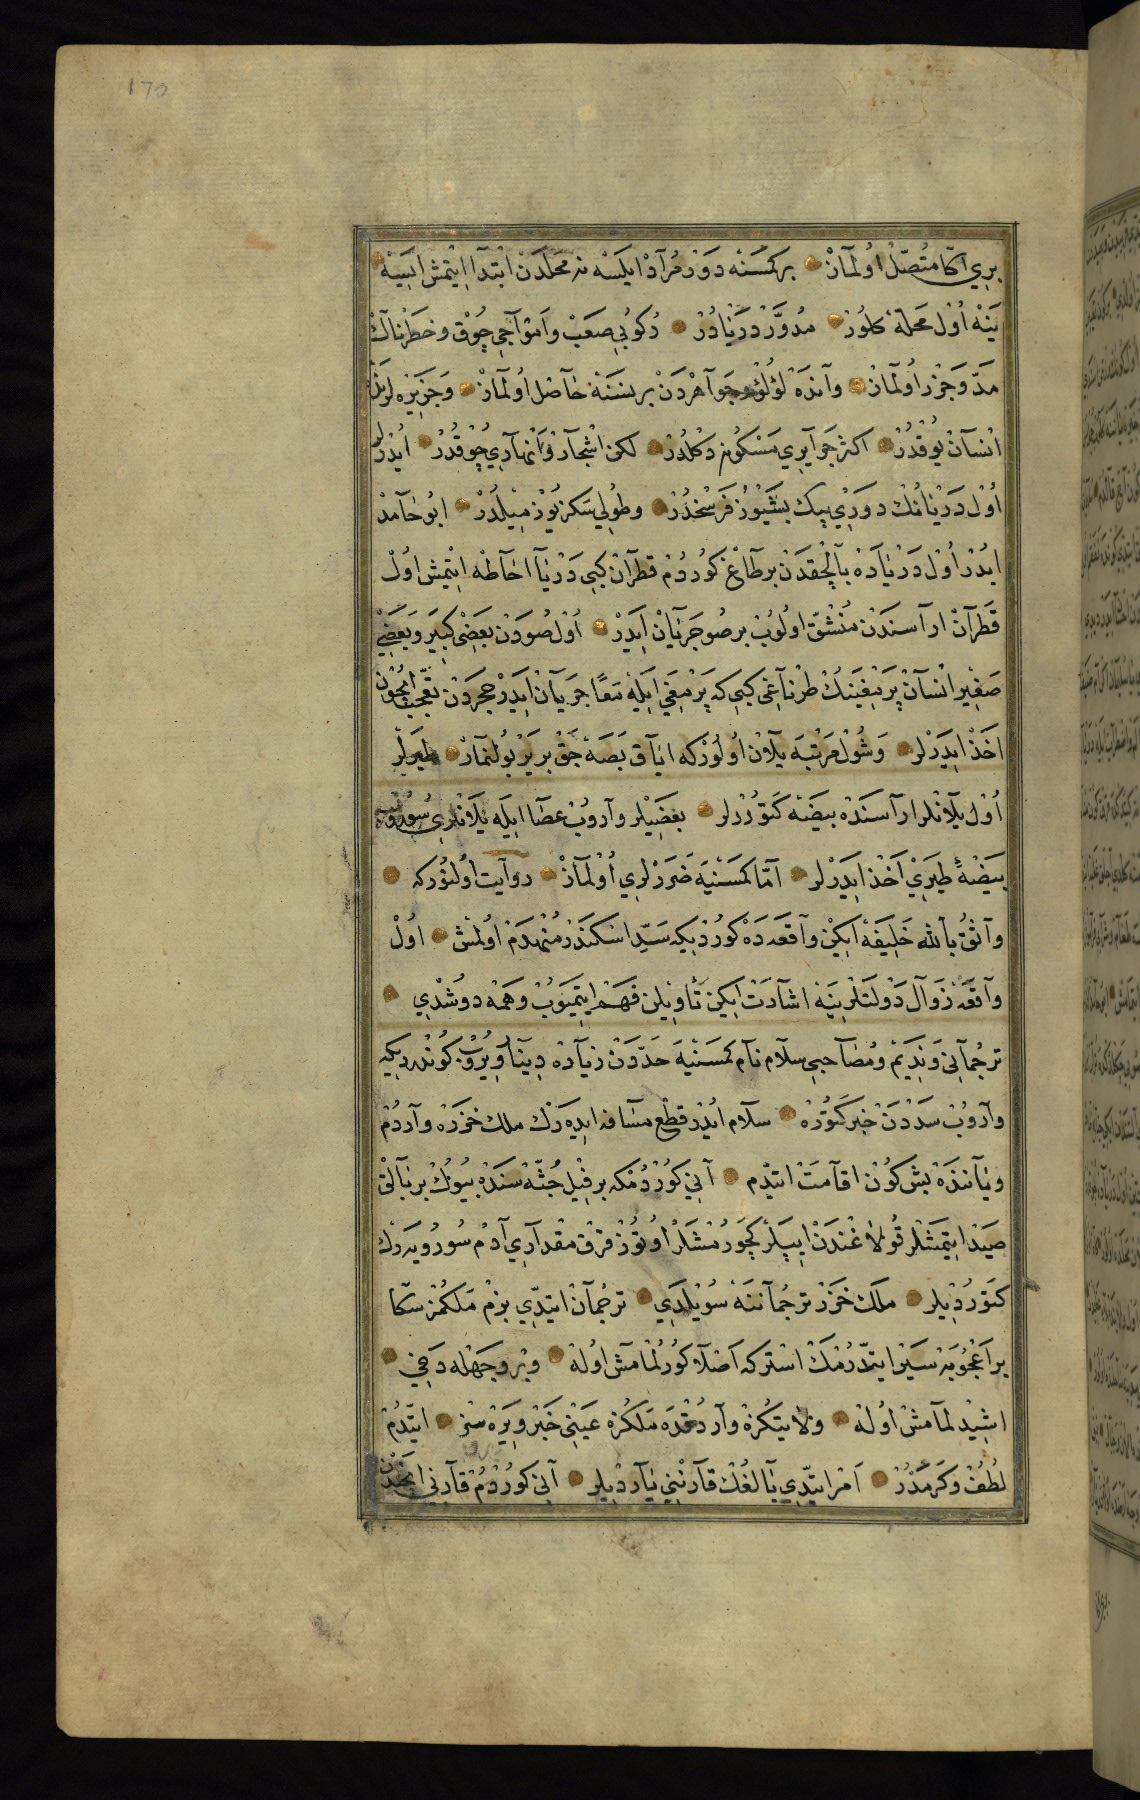 ١٧٥
بري آكا متّصل اولمان بر كمسنه دور مراد ايلسه نه محلدن ابتدا ايتمش ايسه
ينه اول محله كلور مدوّر دريادر دكولي صعب وامواجي چوق وخطرناك
مدّ وجزر اولمان وانده لؤلؤ وجواهردن بر نسنه حاصل اولمان وجزيره لرنده
انسان يوقدر اكثر جزايري مسكون دكلدر لكن اشجار وانهاري چوقدر ايدرلر
اول دريانك دوري بيك بشيوز فرسخدر وطولي سكز يوز ميلدر ابو حامد
ايدر اول درياده بالچقدن بر طاغ كوردم قطران كبي دريا احاطه ايتمش اول
قطران اراسندن منشقّ اولوب بر صو جريان ايدر اول صودن بعضي كبير وبعضي
صغير انسان پرمغينك طرناغي كبي كه پرمغي ايله معا جريان ايدر حجردن تعجّب ايچون
اخذ ايدرلر وشول مرتبه يلان اولور كه اياق بصه جق بر ير بولنمز طيرلر
اول يلانلر اراسنده بيضه كتوررلر بعضيلر واروب عصا ايله يلانلري سوروب
بيضۀ طيري اخذ ايدرلر امّا كمسنيه ضررلري اولماز روايت اولنور كه
واثق بالله خليفه ايكن واقعه ده كوردي كه سدّ اسكندر منهدم اولمش اول
واقعه زوال دولتلرينه اشارت ايكن تأويلن فهم ايتميوب وهمه دوشدي
ترجماني ونديم ومصاحبي سلام نام كمسنيه حدّدن زياده دينار ويروب كوندردي كه
واروب سددن خبر كتوره سلام ايدر قطع مسافه ايدرك ملك خزره واردم
ويانده بش كون اقامت ايتدم آني كوردم كه بر فيل جثّه سنده بيوك بر بالق
صيد ايتمشلر قولاغندن ايپلر كچورمشلر اوتوز قرق مقداري آدم سورويه رك
كتورديلر ملك خزر ترجماننه سويلدي ترجمان ايتدي بزم ملكمز سكا
بر اعجوبه سير ايتدرمك استر كه اصلا كورلمامش اوله وبر وجهله دخي
اشيدلمامش اوله ولايتكزه واردقده ملككزه عيني خبر ويره سز ايتدم
لطف وكرمدر امر ايتدي بالغك قارنيني يارديلر آني كوردم قارني ايچندن